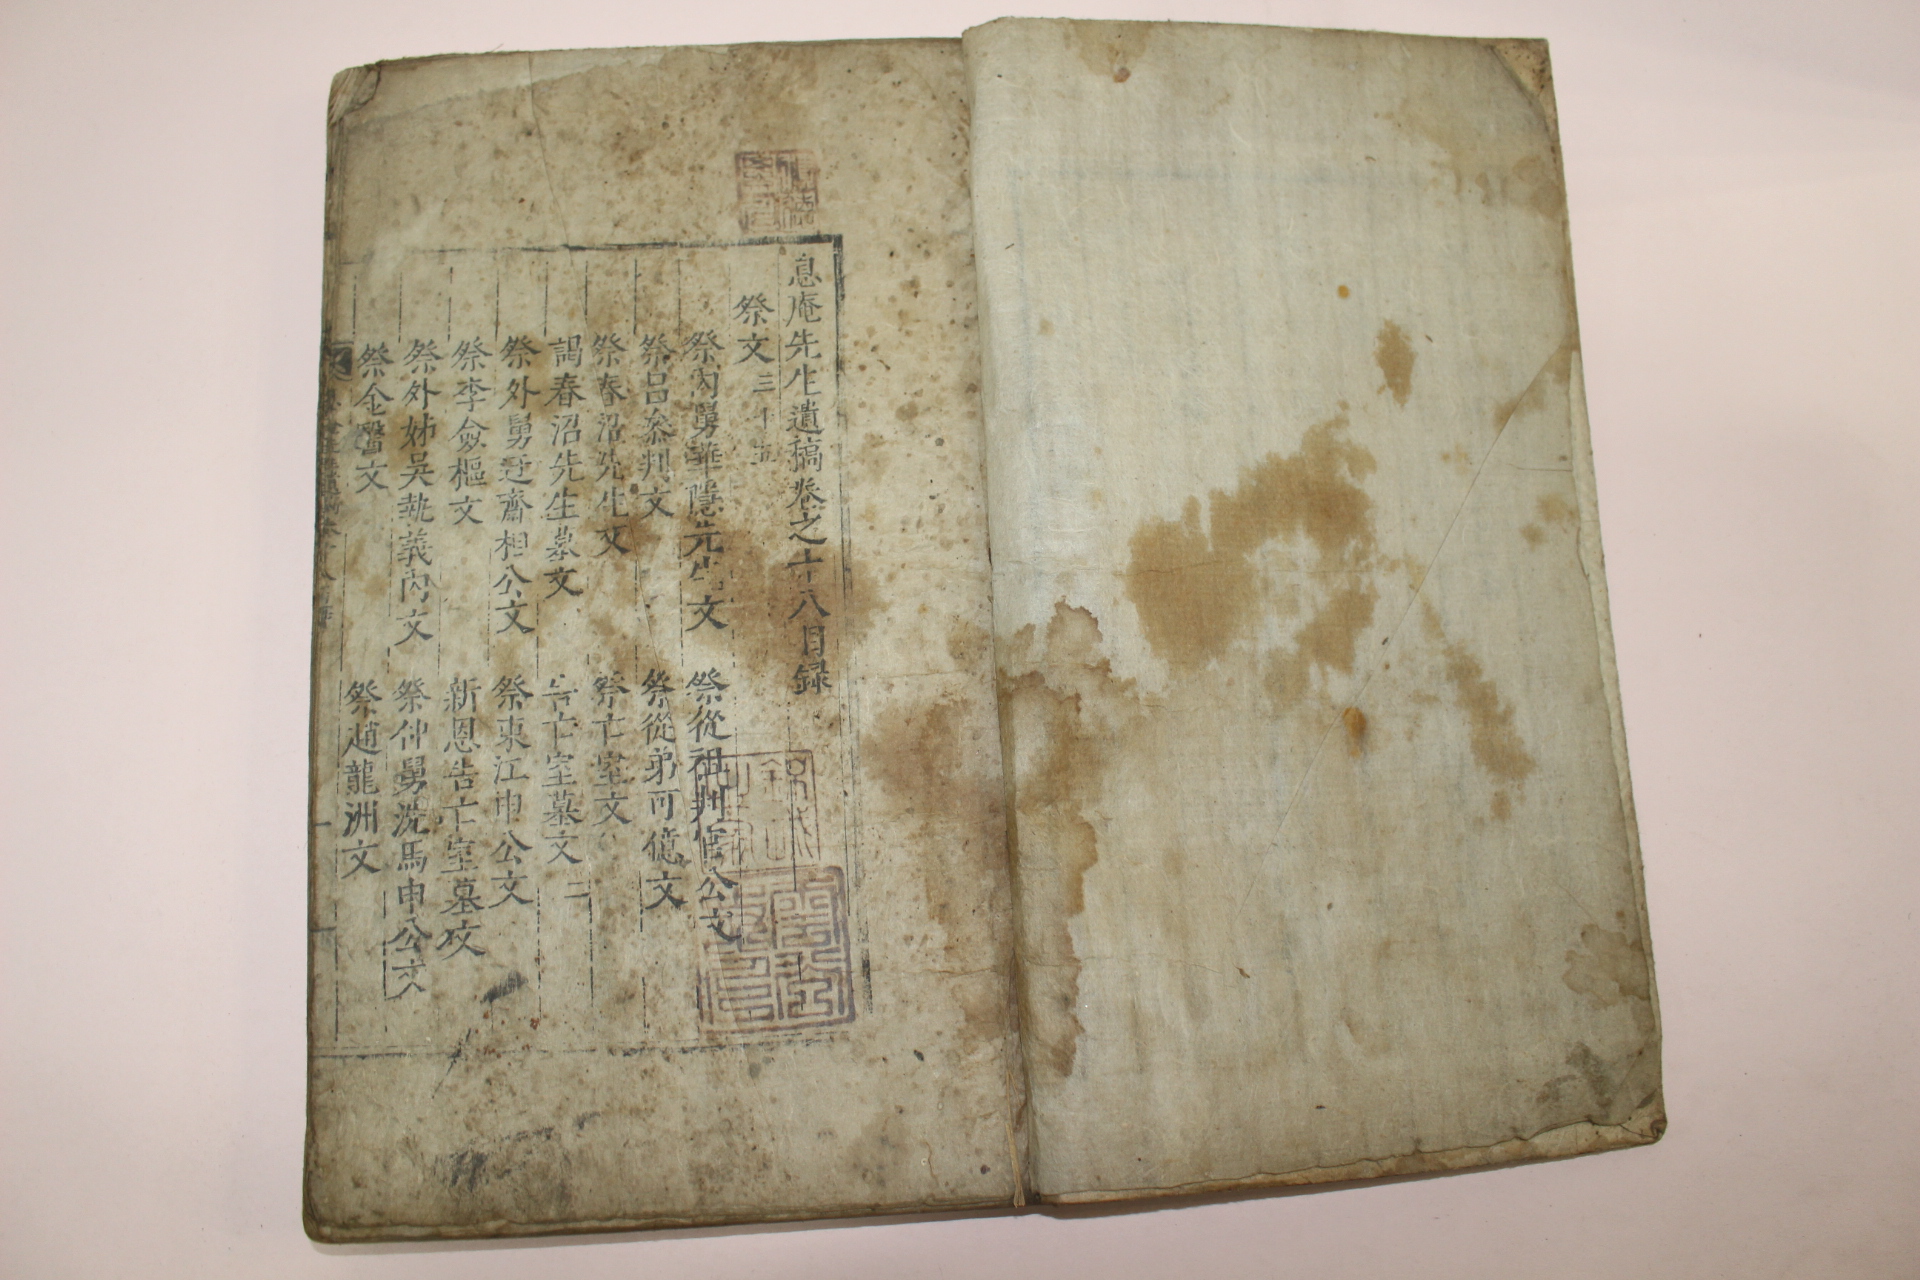 息庵先生遺稿卷之十八目錄
祭文三十五
祭內舅華隱先生文 祭從祖判官公文
祭呂叅判文 祭從弟可億文
祭春沼先生文 祭亡室文
謁春沼先生墓文 告亡室墓文二
祭外舅迂齋相公文 祭東江申公文
祭李僉樞文 新恩告亡室墓文
祭外姊吳執義內文 祭仲舅洗馬申公文
祭金醫文 祭趙龍洲文